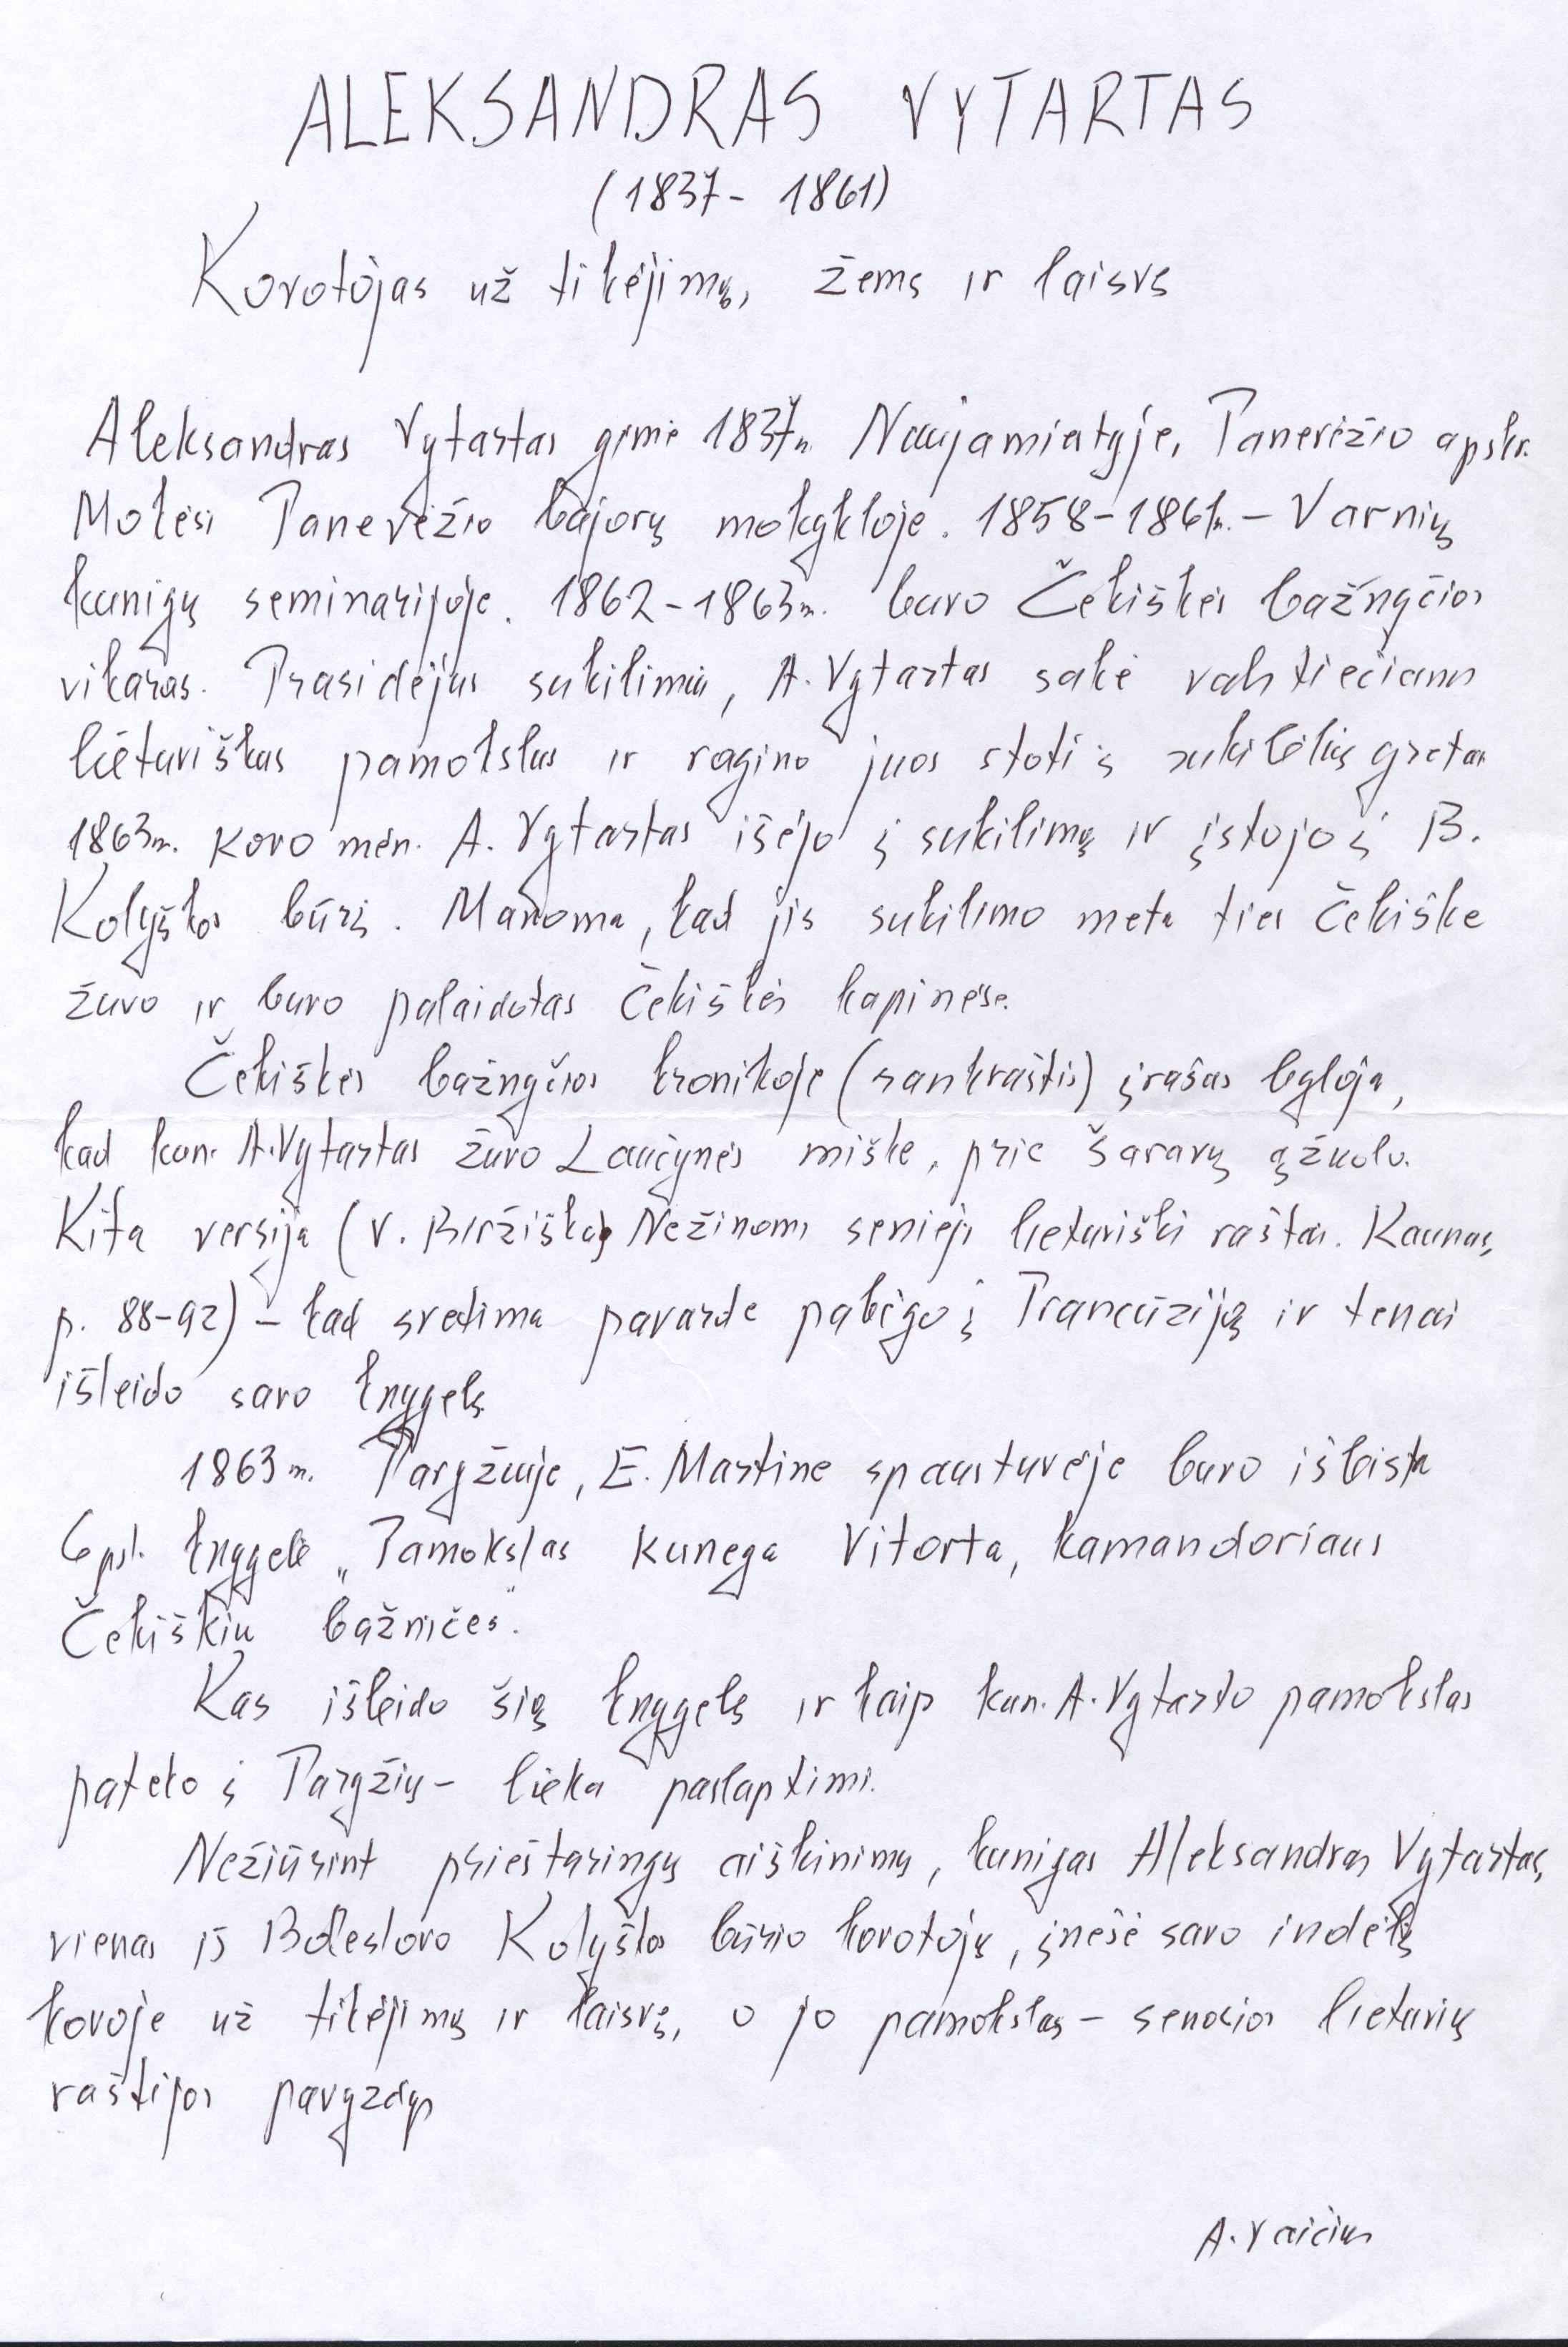 ALEKSANDRAS VYTARTAS
(1837- 1861)
Kovotojas už tikėjimą, žemę ir laisvę
Aleksandras Vytartas gimė 1837m. Naujamiestyje, Panevėžio apskr.
Mokėsi Panevėžio bajorų mokykloje. 1858-1861m. - Varnių
kunigų seminarijoje. 1862-1863m. buvo Čekiškės bažnyčios
vikaras. Prasidėjus sukilimui, A. Vytartas sakė valstiečiams
lietuviškus pamokslus ir ragino juos stoti į sukilėlių gretas.
1863m. kovo mėn. A. Vytartas išėjo į sukilimą ir įstojo į B.
Kolyškos būrį. Manoma, kad jis sukilimo metu ties Čekiške
žuvo ir buvo palaidotas Čekiškės kapinėse.
Čekiškės bažnyčios kronikoje (rankraštis) įrašas byloja,
kad kun. A. Vytartas žuvo Laučynės miške, prie Šaravų ąžuolo.
Kita versija (V. Biržiška, Nežinomi senieji lietuviški raštai. Kaunas,
p. 88-92) - kad svetima pavarde pabėgo į Prancūziją ir tenai
išleido savo knygelę.
1863m. Paryžiuje, E. Martine spaustuvėje buvo išleista
6 psl. knygelė „Pamokslas kunega Vitorta, kamandoriaus
Čekiškiu bažničes".
Kas išleido šią knygelę ir kaip kun. A. Vytarto pamokslas
pateko į Paryžių - lieka paslaptimi.
Nežiūrint prieštaringų aiškinimų, kunigas Aleksandras Vytartas,
vienas iš Boleslovo Kolyškos būrio kovotojų, įnešė savo indėlį
kovoje už tikėjimą ir laisvę, o jo pamokslas - senosios lietuvių
raštijos pavyzdys
A. Vaičius